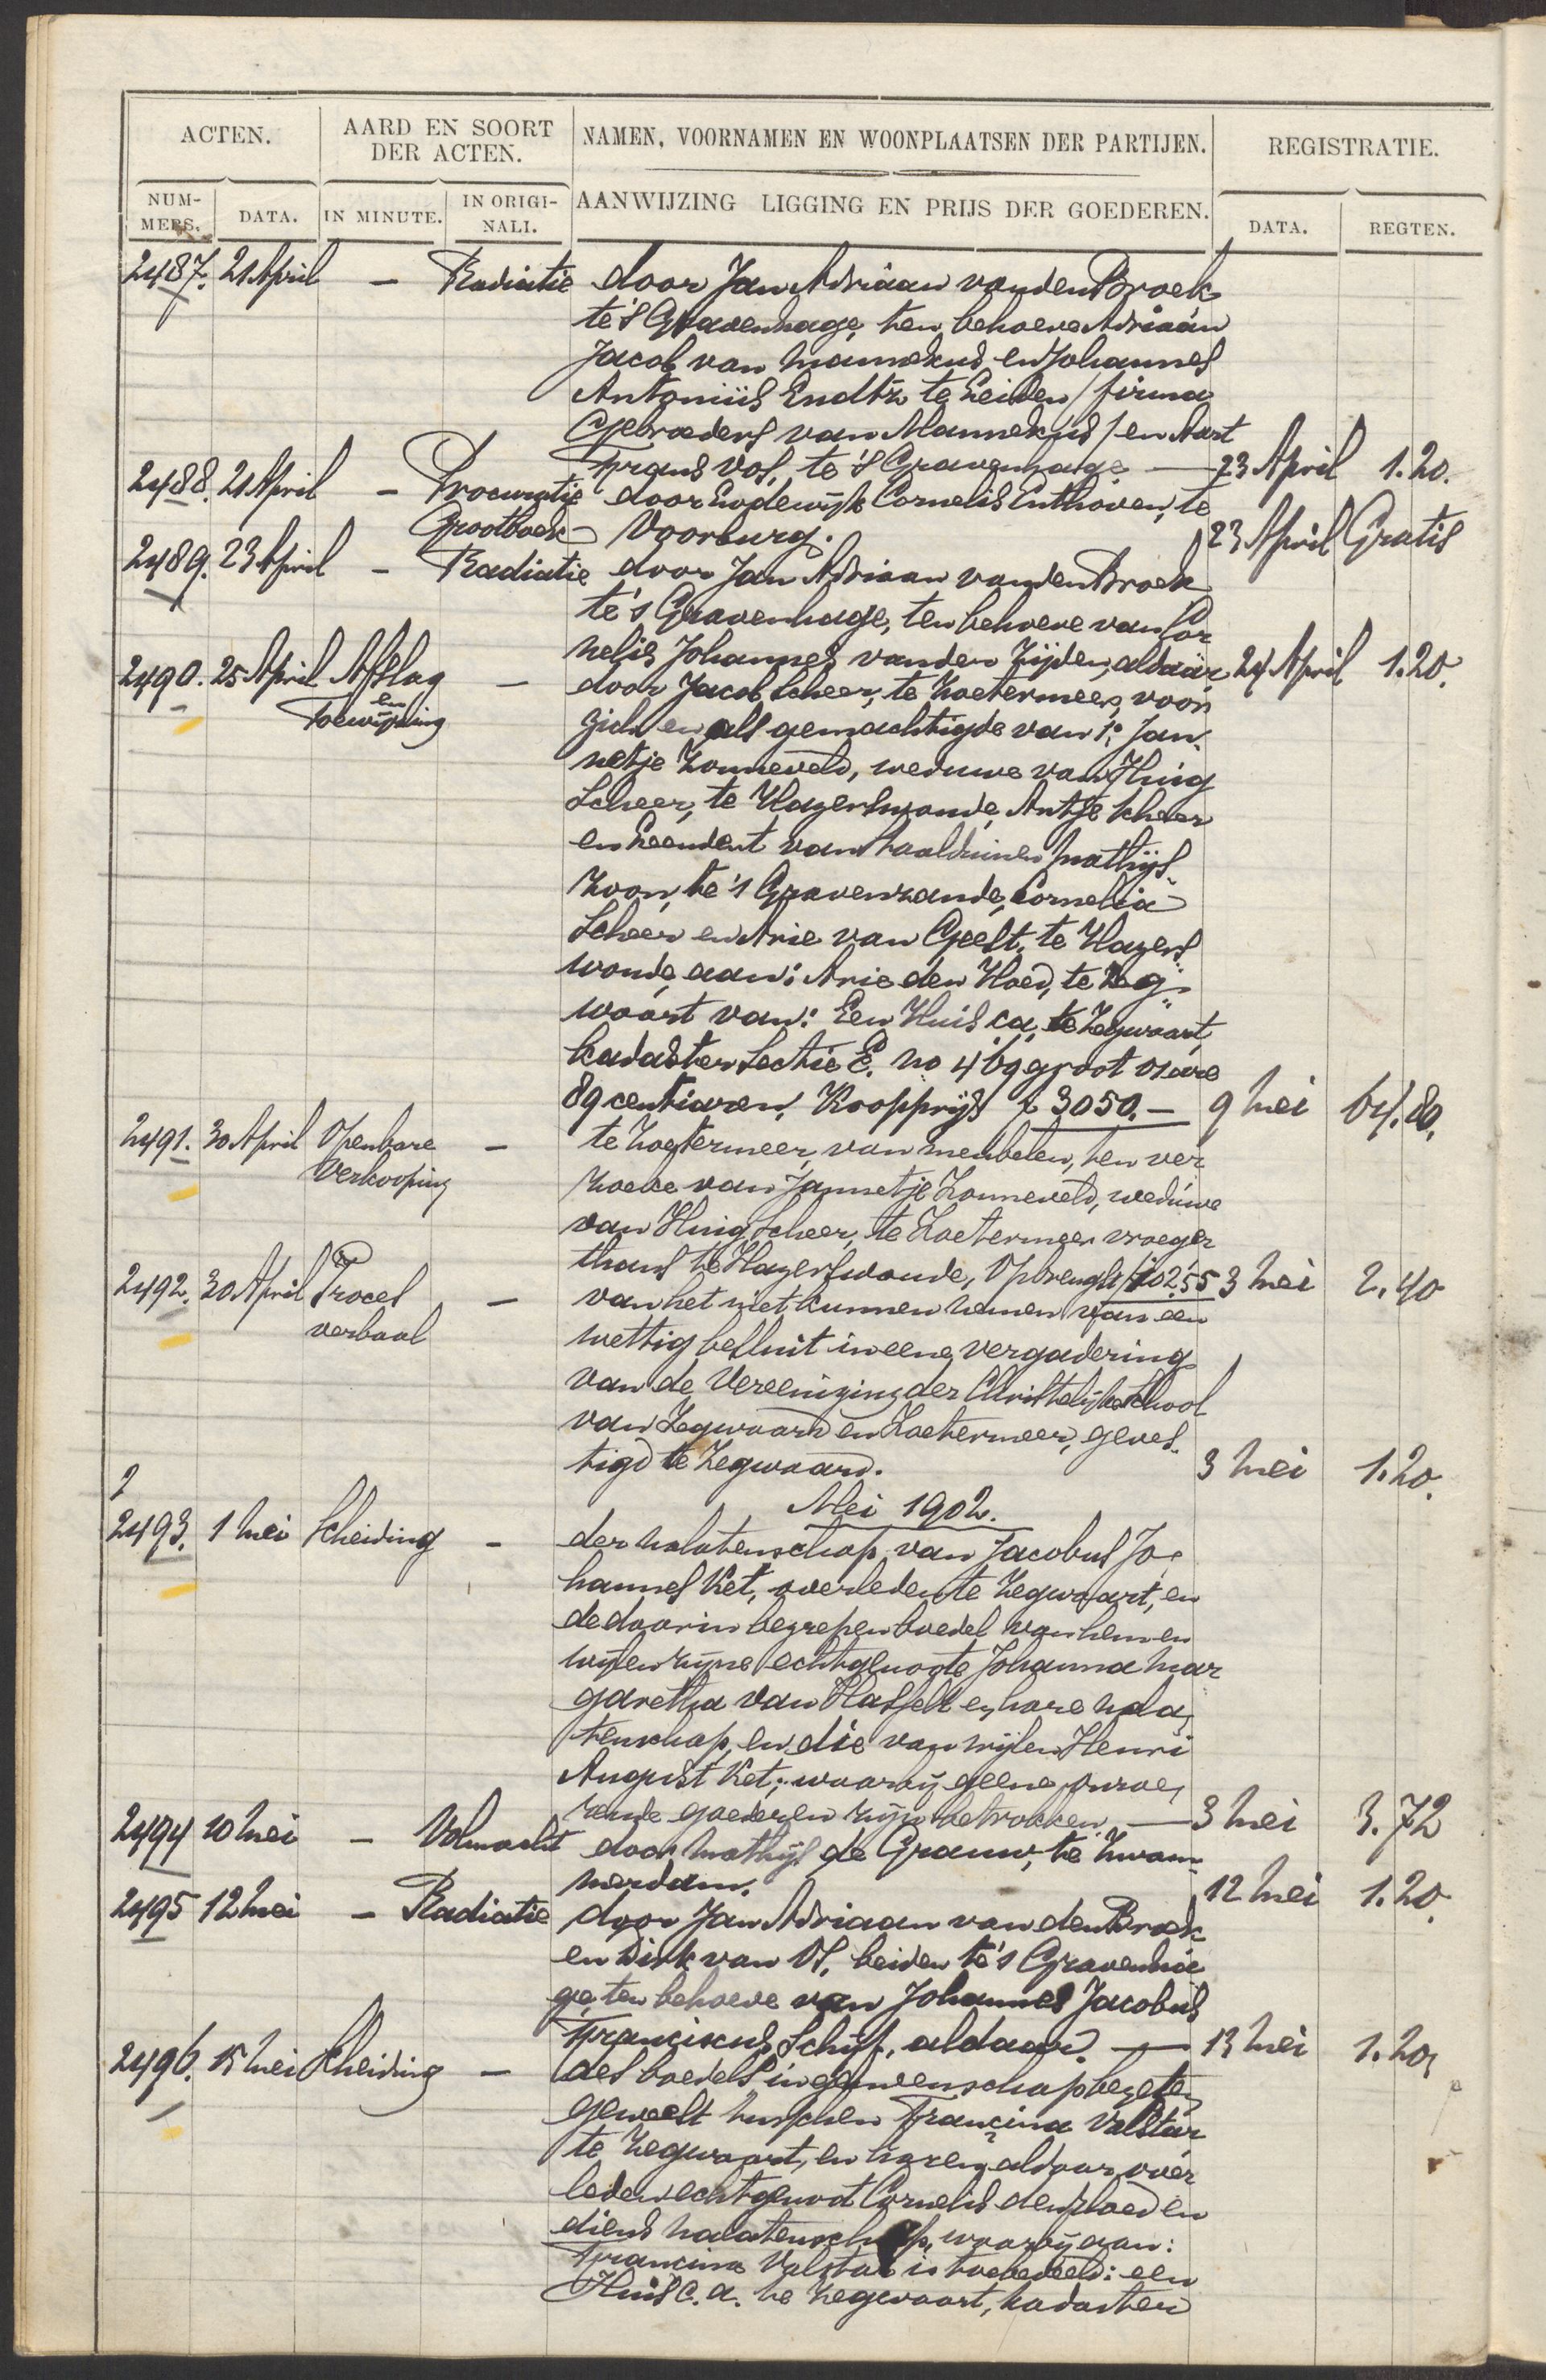 ACTEN.
AARD EN SOORT
DER ACTEN.
NAMEN, VOORNAMEN EN WOONPLAATSEN DER PARTIJEN.
AANWIJZING LIGGING EN PRIJS DER GOEDEREN.
REGISTRATIE.
NUM-
MERS.
DATA.
IN MINUTE.
IN ORIGI-
NALI.
DATA.
REGTEN.
2487. 21 April – Radiatie door Jan Adriaan van den Broek
te 's Gravenhage, ten behoeve Adriaan
Jacob van Mannekus en Johannes
Antonius Endtz te Leiden / firma
Gebroeders van Mannekus / en Aart
Frans Vos, te 's Gravenhage — 23 April 1.20.
2488. 21 April – Procuratie door Lodewijk Cornelis Enthoven, te
Grootboek Voorburg. 23 April Gratis
2489. 23 April – Radiatie door Jan Adriaan van den Broek
te 's Gravenhage, ten behoeve van Cor
nelis Johannes van der Zijden, aldaar 24 April 1.20.
2490. 25 April Afslag – door Jacob Scheer, te Zoetermeer, voor
en
Toewijzing zich en als gemachtigde van 1o. Jan-
netje Zonneveld, weduwe van Huig
Scheer, te Hazerswoude, Antje Scheer
en Leendert van Baalduinen Mathijs
zoon, te 's Gravenzande, Cornelia
Scheer en Arie van Geest, te Hazers
woude, aan: Arie den Hoed, te Zeg-
waart van: Een Huis c.a. te Zegwaart,
kadaster Sectie E. no 469 groot 01 are
89 centiaren, Koopprijs f 3050.— 9 Mei 64.80.
2491. 30 April Openbare – te Zoetermeer, van meubelen, ten ver
Verkooping zoeke van Jannetje Zonneveld, weduwe
van Huig Scheer, te Zoetermeer vroeger
thans te Hazerswoude, Opbrengst f 102.55 3 Mei 2.40
2492. 30 April Proces – van het niet kunnen nemen van een
verbaal
wettig besluit in eene vergadering
van de Vereeniging der Christelijke School
van Zegwaard en Zoetermeer, geves-
tigd te Zegwaard. 3 Mei 1.20.
Mei 1902.
2
2493. 1 Mei Scheiding – der nalatenschap van Jacobus Jo-
hannes Ket, overleden te Zegwaart, en
de daarin begrepen boedel van hem en
wijlen zijne echtgenoote Johanna Mar
garetha van Hasselt en hare nala-
tenschap, en die van wijlen Henri
August Ket; waarbij geene onroe-
rende goederen zijn betrokken — 3 Mei 3.72
2494 10 Mei – Volmacht door Mathijs de Grauw, te Zwam-
merdam. 12 Mei 1.20.
2495 12 Mei – Radiatie door Jan Adriaan van den Broek
en Dirk van Os, beiden te 's Gravenha
ge, ten behoeve van Johannes Jacobus
Franciscus Schijf, aldaar. — 13 Mei 1.20,
2496. 15 Mei Scheiding – des boedels in gemeenschap bezeten
geweest tusschen Francina Valstar,
te Zegwaart, en haren aldaar over
leden echtgenoot Cornelis den Hoed en
diens nalatenschap, waarbij aan:
Francina Valstar is toebedeeld: een
Huis c.a. te Zegwaart, kadaster